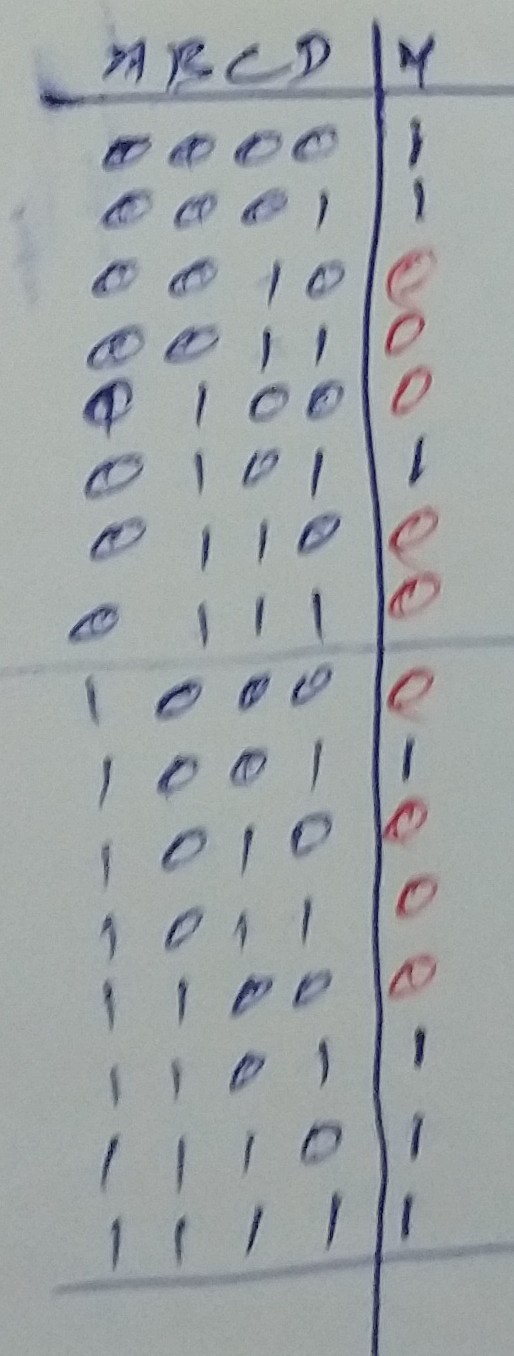 A B C D Y
0 0 0 0 1
0 0 0 1 1
0 0 1 0 0
0 0 1 1 0
0 1 0 0 0
0 1 0 1 1
0 1 1 0 0
0 1 1 1 0
1 0 0 0 0
1 0 0 1 1
1 0 1 0 0
1 0 1 1 0
1 1 0 0 0
1 1 0 1 1
1 1 1 0 1
1 1 1 1 1